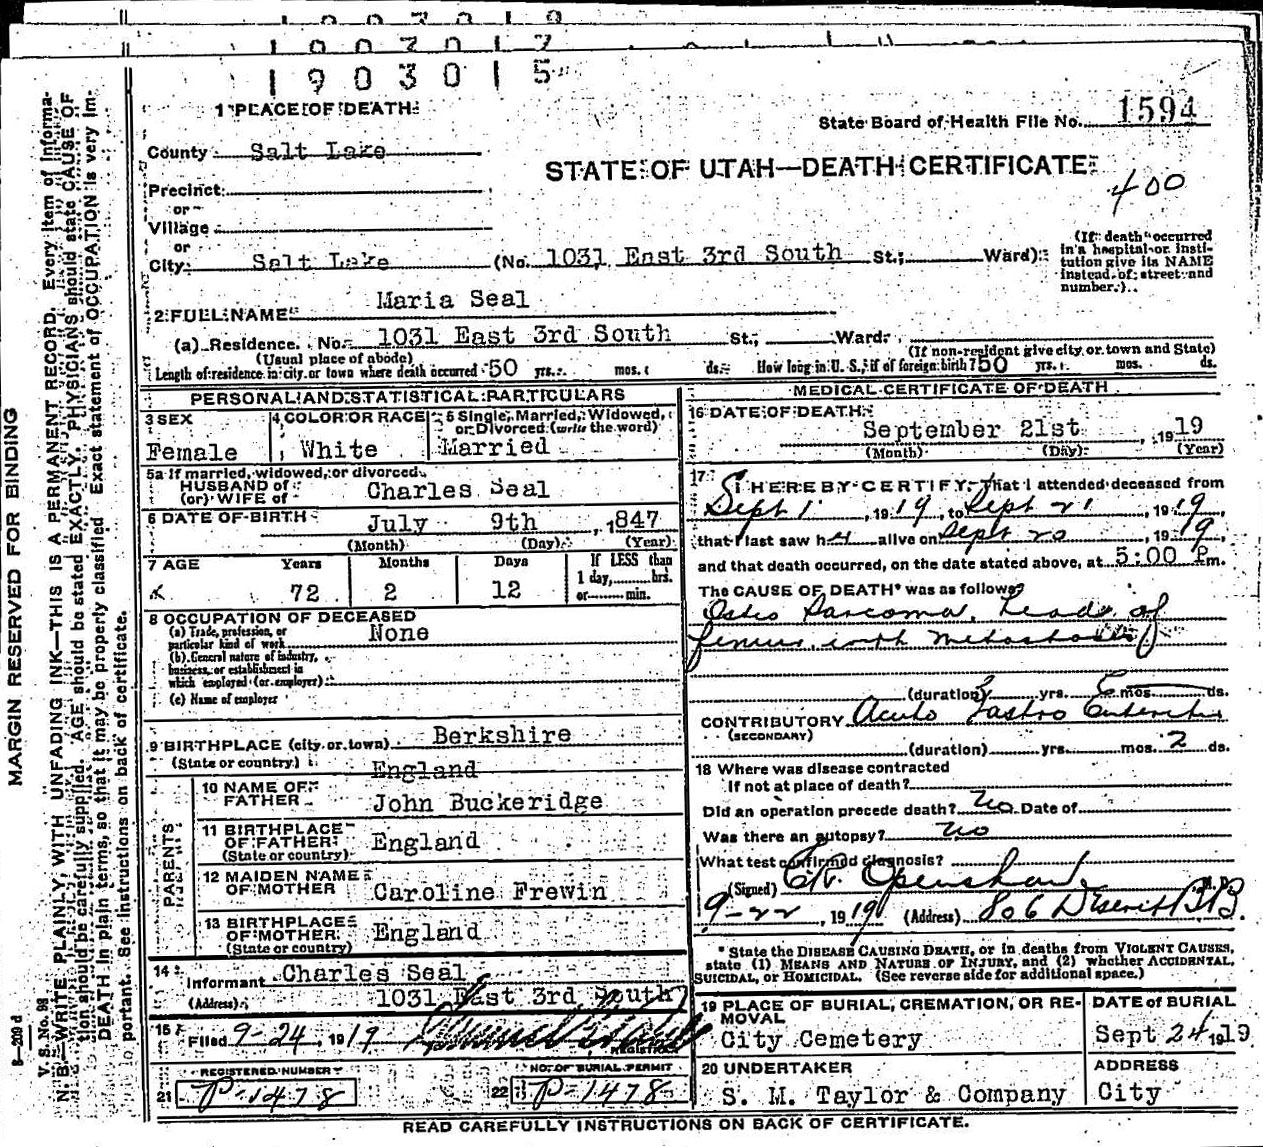 1903019
1903017
1903015
1 PLACE OF DEATH
State Board of Health File No. 1594
County Salt Lake
STATE OF UTAH—DEATH CERTIFICATE
400
Precinct
or
Village
or
City Salt Lake (No. 1031 East 3rd South St.; Ward)
(If death occurred in a hospital or institution give its NAME instead of street and number.)
2 FULL NAME Maria Seal
(a) Residence. No. 1031 East 3rd South St., Ward
(Usual place of abode) (If non-resident give city or town and State)
Length of residence in city or town where death occurred 50 yrs. mos. ds. How long in U. S., if of foreign birth? 50 yrs. mos. ds.
PERSONAL AND STATISTICAL PARTICULARS
3 SEX 4 COLOR OR RACE 5 Single, Married, Widowed, or Divorced (write the word)
Female White Married
5a If married, widowed, or divorced
HUSBAND of
(or) WIFE of Charles Seal
6 DATE OF BIRTH July 9th, 1847
(Month) (Day) (Year)
7 AGE Years Months Days If LESS than 1 day, hrs. or min.
72 2 12
8 OCCUPATION OF DECEASED
(a) Trade, profession, or particular kind of work None
(b) General nature of industry, business, or establishment in which employed (or employer)
(c) Name of employer
9 BIRTHPLACE (city or town) Berkshire
(State or country) England
PARENTS
10 NAME OF FATHER John Buckeridge
11 BIRTHPLACE OF FATHER (State or country) England
12 MAIDEN NAME OF MOTHER Caroline Frewin
13 BIRTHPLACE OF MOTHER (State or country) England
14 Informant Charles Seal
(Address) 1031 East 3rd South
15 Filed 9-24, 1919
REGISTRAR
REGISTERED NUMBER
21 P-1478
NO. OF BURIAL PERMIT
22 P-1478
MEDICAL CERTIFICATE OF DEATH
16 DATE OF DEATH
September 21st, 1919
(Month) (Day) (Year)
17 I HEREBY CERTIFY, That I attended deceased from
Sept 1, 1919, to Sept 21, 1919,
that I last saw her alive on Sept 20, 1919,
and that death occurred, on the date stated above, at 5:00 P m.
The CAUSE OF DEATH* was as follows
Osteo Sarcoma, heads of
femur with metastasis
(duration) yrs. 6 mos. ds.
CONTRIBUTORY Acute Gastro Enteritis
(SECONDARY)
(duration) yrs. mos. 2 ds.
18 Where was disease contracted
If not at place of death?
Did an operation precede death? No Date of
Was there an autopsy? no
What test confirmed diagnosis?
(Signed) Openshaw M.D.
9-22, 1919 (Address) 806 Deseret B B.
*State the DISEASE CAUSING DEATH, or in deaths from VIOLENT CAUSES,
state (1) MEANS AND NATURE OF INJURY, and (2) whether ACCIDENTAL,
SUICIDAL, or HOMICIDAL. (See reverse side for additional space.)
19 PLACE OF BURIAL, CREMATION, OR REMOVAL DATE of BURIAL
City Cemetery Sept 24 1919
20 UNDERTAKER ADDRESS
S. M. Taylor & Company City
READ CAREFULLY INSTRUCTIONS ON BACK OF CERTIFICATE.
MARGIN RESERVED FOR BINDING
8—209 d
V. S. No. 98
N. B.—WRITE PLAINLY, WITH UNFADING INK—THIS IS A PERMANENT RECORD. Every item of informa-
tion should be carefully supplied. AGE should be stated EXACTLY. PHYSICIANS should state CAUSE OF
DEATH in plain terms, so that it may be properly classified. Exact statement of OCCUPATION is very im-
portant. See instructions on back of certificate.